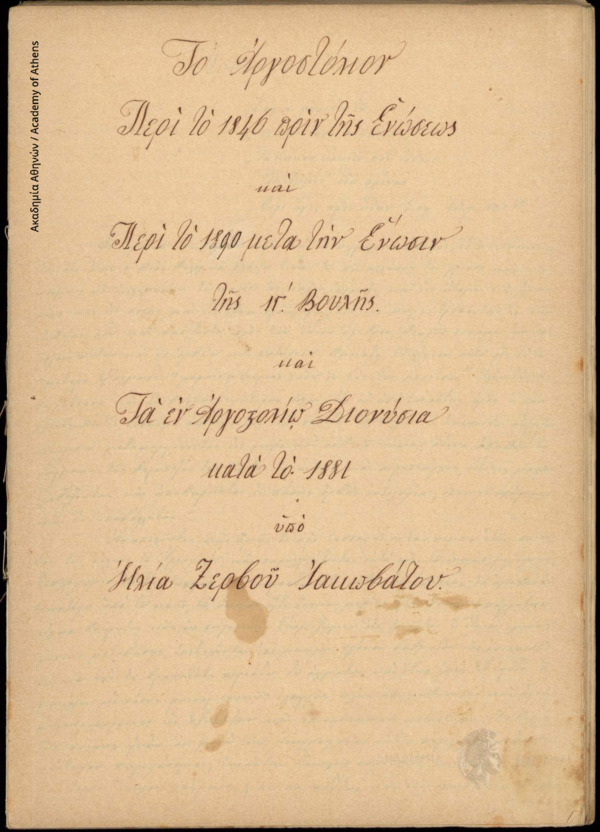 Το Ἀργοστόλιον
Περὶ τὸ 1846 πρὶν τῆς Ἑνώσεως
καὶ
Περὶ τὸ 1890 μετα τὴν Ἕνωσιν
τῆς ιβ΄. Βουλῆς.
καὶ
Τὰ ἐν Ἀργοστολίῳ Διονύσια
κατὰ τὸ 1881
ὑπὸ
Ἠλία Ζερβοῦ Ἰακωβάτου.
Ακαδημία Αθηνών / Academy of Athens